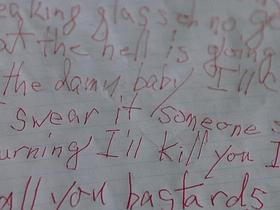 eaking glass oh no g
at the hell is going
the damn baby I'll
I swear it someone
urning I'll kill you I
all you bastards